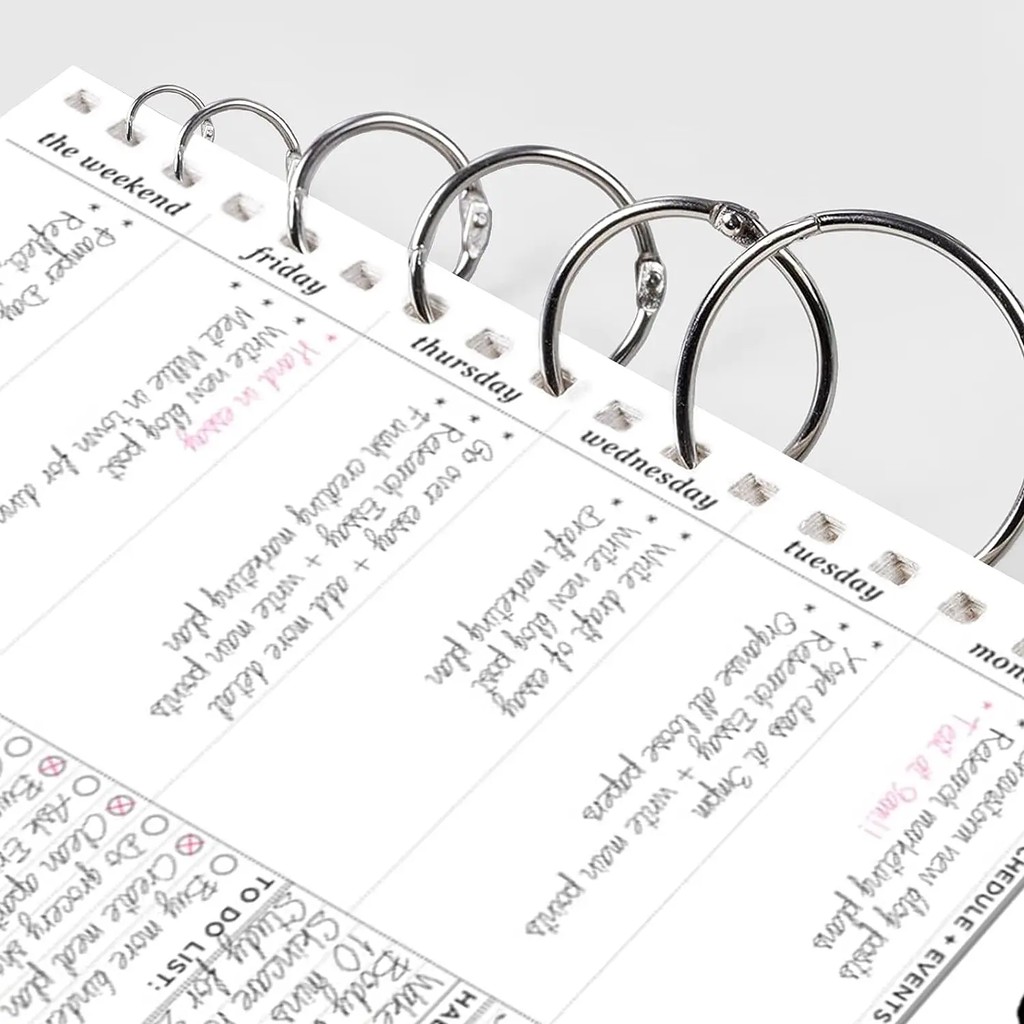 SCHEDULE + EVENTS
mon
* Test at 9am!!
Brainstorm new blog posts
* Research marketing plans
tuesday
* Yoga class at 3mpm
* Research Essay + write main points
* Organise all loose papers
wednesday
* Write draft of essay
* Write new blog post
* Draft marketing plan
thursday
* Go over essay + add more detail
* Research Essay + write main points
* Finish creating marketing plan
friday
* Hand in essay
* Write new blog post
* Meet Millie in town for
the weekend
* Pamper Day
* Reflect
HAB
Wake
Body
10 mins
Skincare
Study for
TO DO LIST:
Buy more
Create med plan
Do grocery
Clean
Ask
Buy